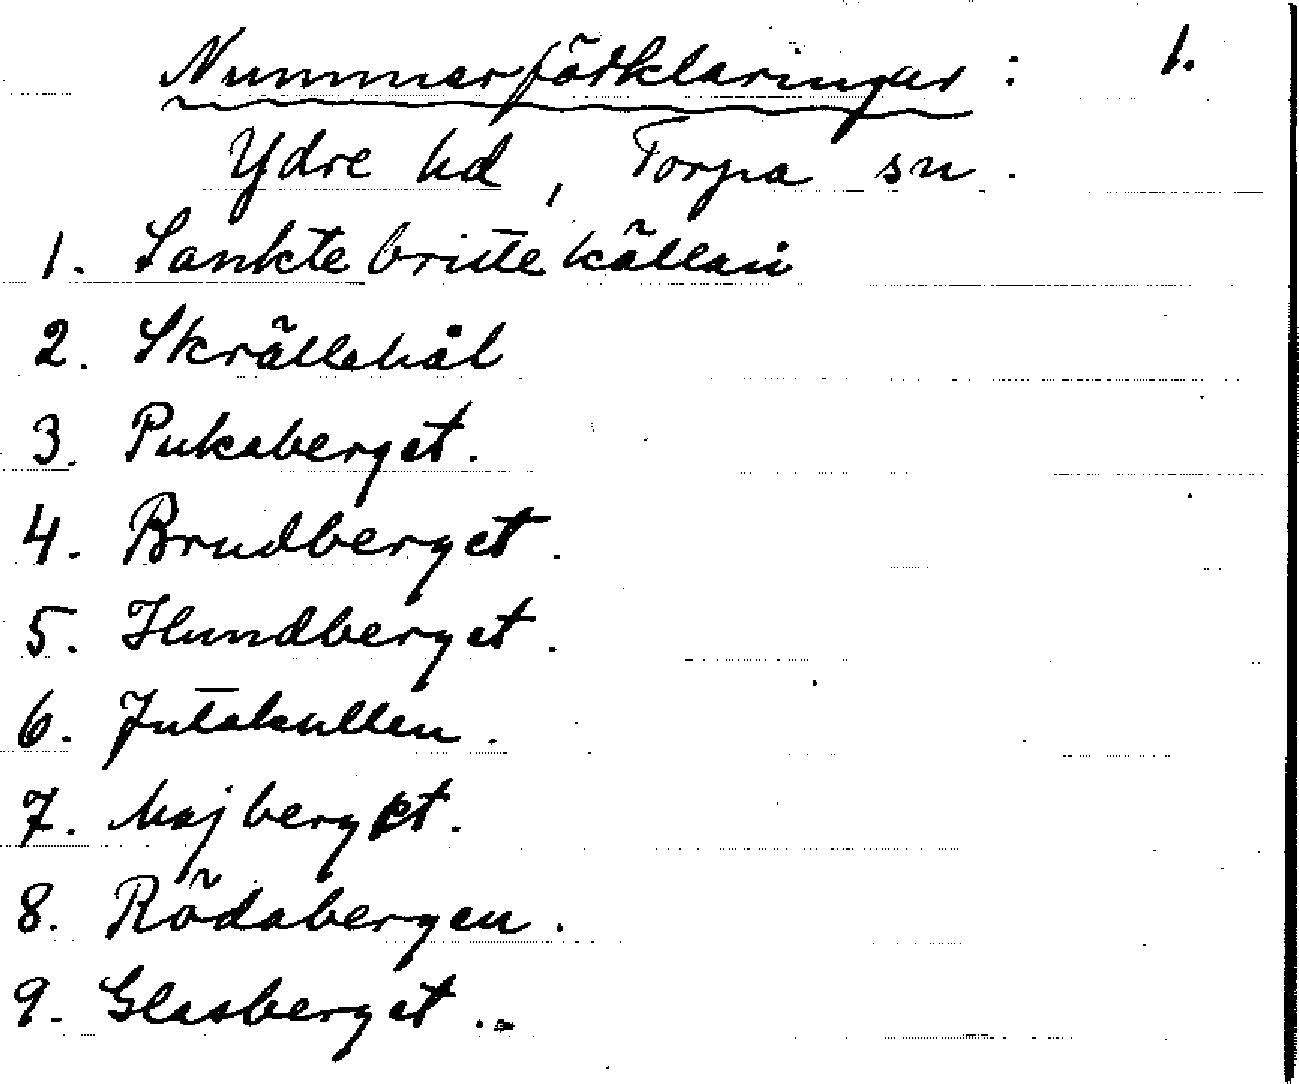 Nummerförklaringar : 1.
Ydre hd, Torpa sn.
1. Sankte britte källan
2. Skrällehål
3. Pukaberget.
4. Brudberget.
5. Hundberget.
6. Jutakullen.
7. Majberget.
8. Rödabergen.
9. Glasberget.